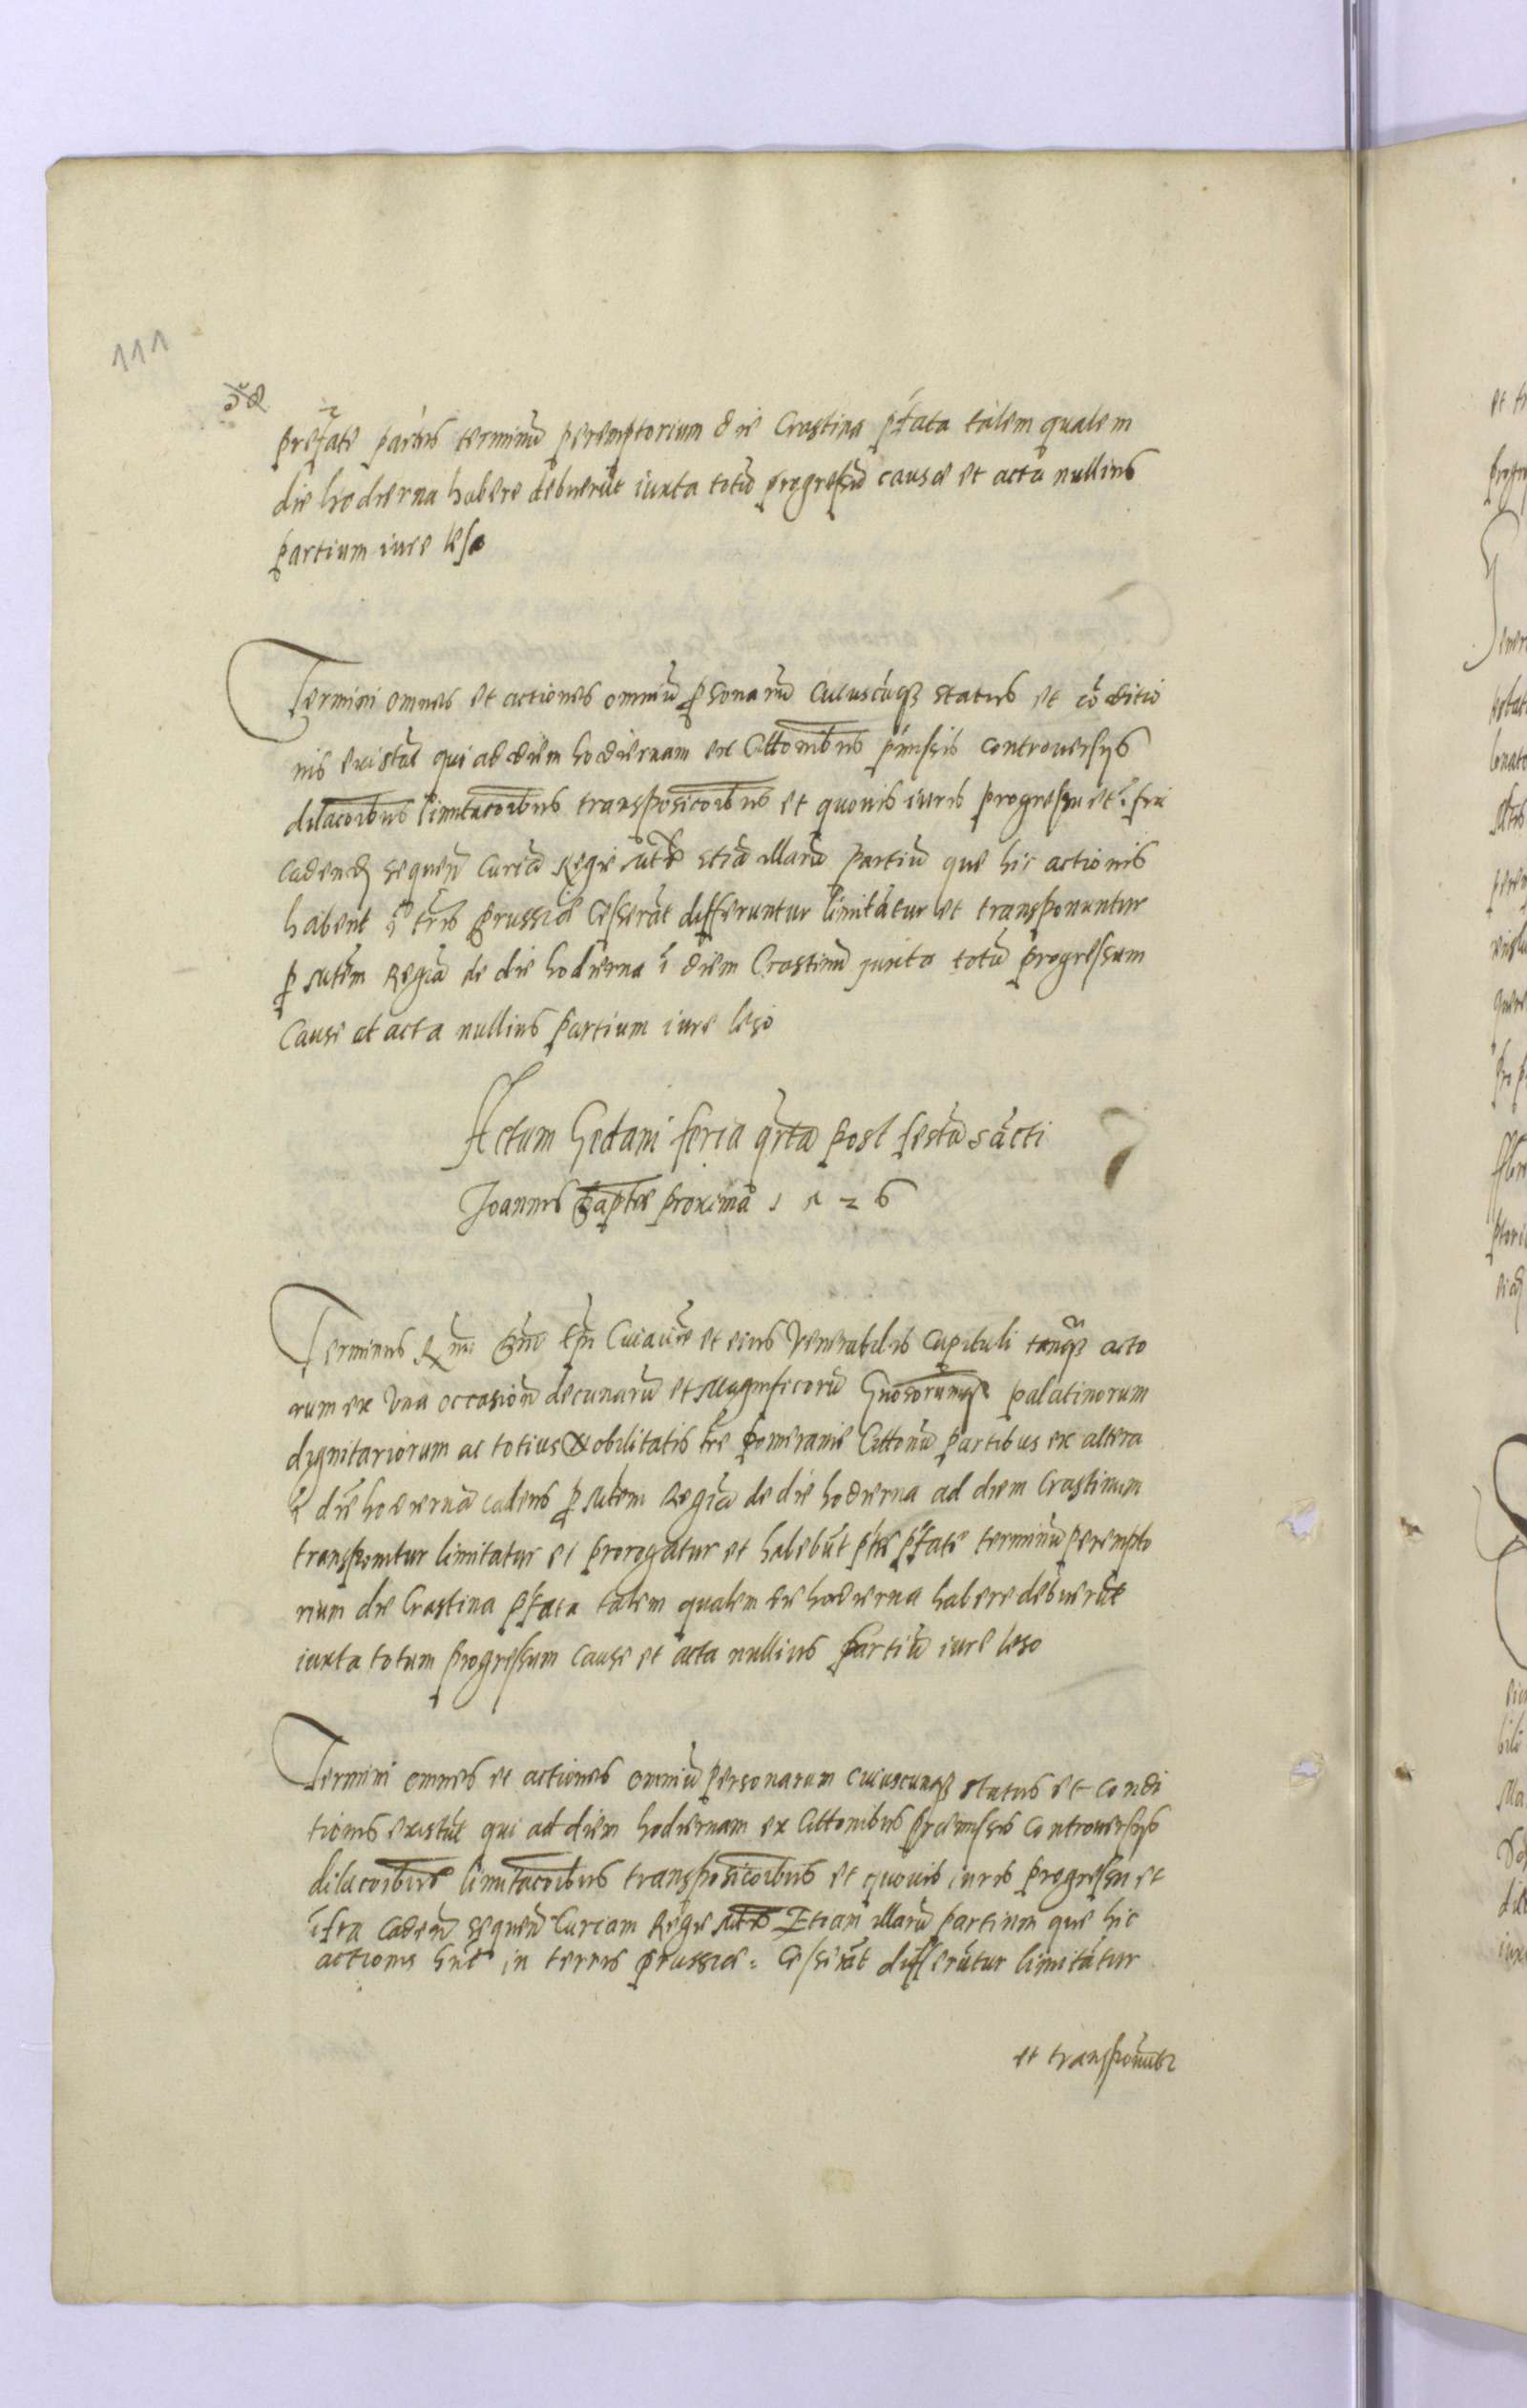 111
prefate partes terminū peremptorium die Crastina p̄fata talem qualem
die hodierna habere debuerūt iuxta totū progressū causæ et acta nullius
partium iure leso
Termini omnes et actiones omniū ꝑsonarū cuiuscūqꝫ status et cōditio
nis existāt qui ad diem hodiernam ex Cittōnibus p̄missis controuersijs
dilacōibus limitacōibus transposicōibus et quouis iuris progressu et īfra
cadenđ sequen̄ Curiā Regie Mtis etiā illarū partiū que hic actiones
habent ī tr̄is Prussiæ Cesserāt differuntur limitātur et transponuntur
ꝑ Mtēm Regiā de die hodierna ī diem Crastinū juxta totū progressum
Cause et acta nullius partium iure leso
Actum Gedani feria q̄rta post festū sācti
Joannis Baptē proxima 1526
Terminus R̄mi Dn̄i Ep̄i Cuiauien̄ et eius Venerabilis Capituli tanqꝫ acto
rum ex Vna occasiōe decimarū et Magnificorū Gn̄osorumqꝫ palatinorum
dignitariorum ac totius Nobilitatis tr̄e Pomeranie Cittōrū partibus ex altera
ī diē hodiernā cadens ꝑ Mtem Regiā de die hodierna ad diem Crastinum
transponitur limitatur et prorogatur et habebūt p̄tes p̄fate terminū perempto
rium die Crastina p̄fata talem qualem die hodierna habere debuerūt
iuxta totum progressum cause et acta nullius partiū iure leso
Termini omnes et actiones omniū personarum cuiuscunqꝫ status et condi
tionis existūt qui ad diem hodiernam ex Cittonibus præmissis controuersijs
dilacōibus limitacōibus transposicōibus et quouis iuris progressu et
īfra caden̄ sequen̄ Curiam Regie Mtis Etiam illarū partium que hic
actiones hn̄t in terris Prussiæ: Cesserāt differūtur limitātur
et transponūtr